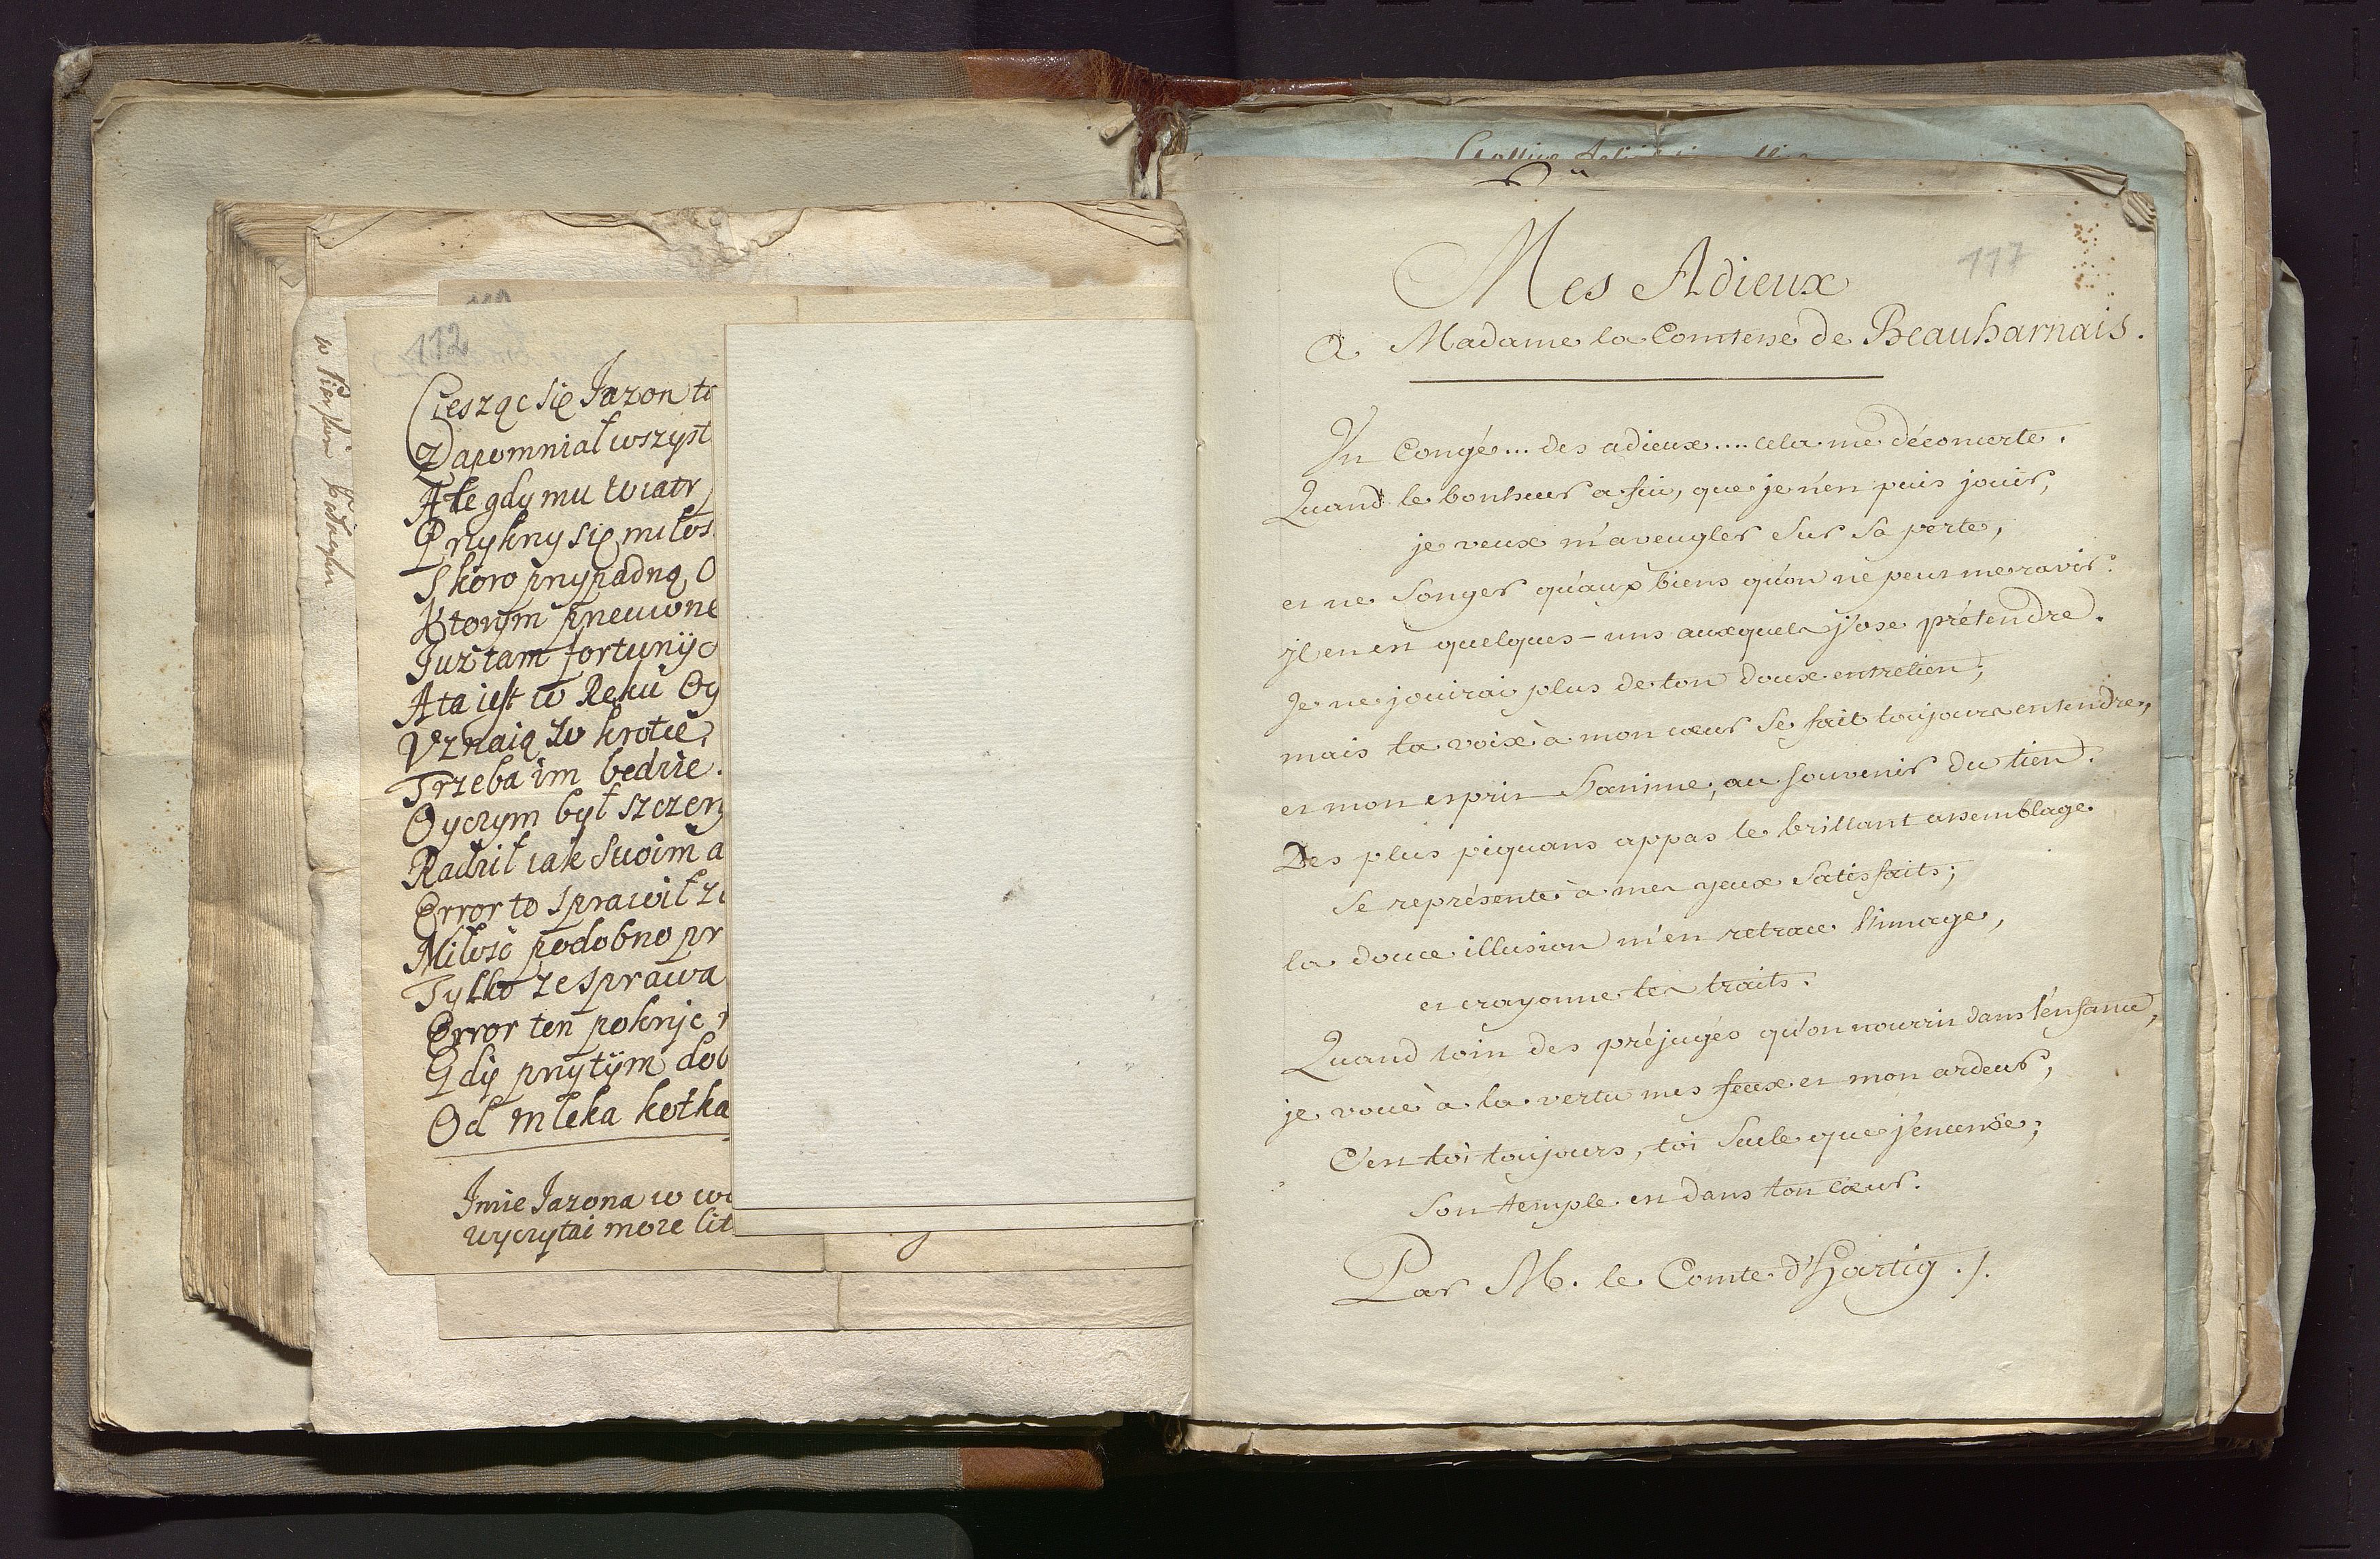 112
Ciesząc się Jazon
Zapomniał wszyst
Ale gdy mu wiatr
Przykrzy się miłos
Skoro przypadną, O
Ktorym przewone
Już tam fortuny
A ta iest w Ręku Oy
Uznaią
Trzeba im będzie
Oyczym był szczer
Radził iak swoim a
Error to sprawił
Miłość podobno pr
Tylko ze sprawa
Error ten pokryje
Gdy przytym dob
Od mleka kotka
Imie Jazona w
wyczytai moze lit
117
Mes Adieux
A Madame la Comtesse de Beauharnais.
Un Congé... des adieux.... cela me déconcerte.
Quand le bonheur a fui, que je n'en puis jouir,
je veux m'aveugler sur sa perte,
et ne songer qu'aux biens qu'on ne peut me ravir.
il en est quelques-uns auxquels j'ose prétendre.
Je ne jouirai plus de ton doux entretien;
mais ta voix à mon cœur se fait toujours entendre,
et mon esprit s'anime, au souvenir du tien.
Des plus piquans appas le brillant assemblage
se représente à mes yeux satisfaits;
la douce illusion m'en retrace l'image,
et crayonne tes traits.
Quand loin des préjugés qu'on nourrit dans l'enfance,
je voue à la vertu mes feux et mon ardeur,
C'est toi toujours, toi seule que j'encense;
Son temple est dans ton cœur.
Par M. le Comte d'Hartig ./.